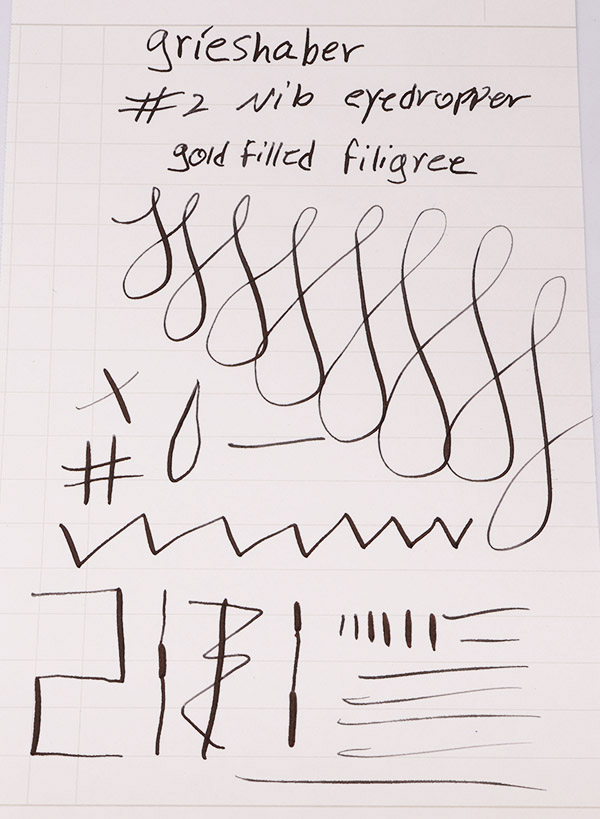 grieshaber
#2 Nib eyedropper
gold filled filigree